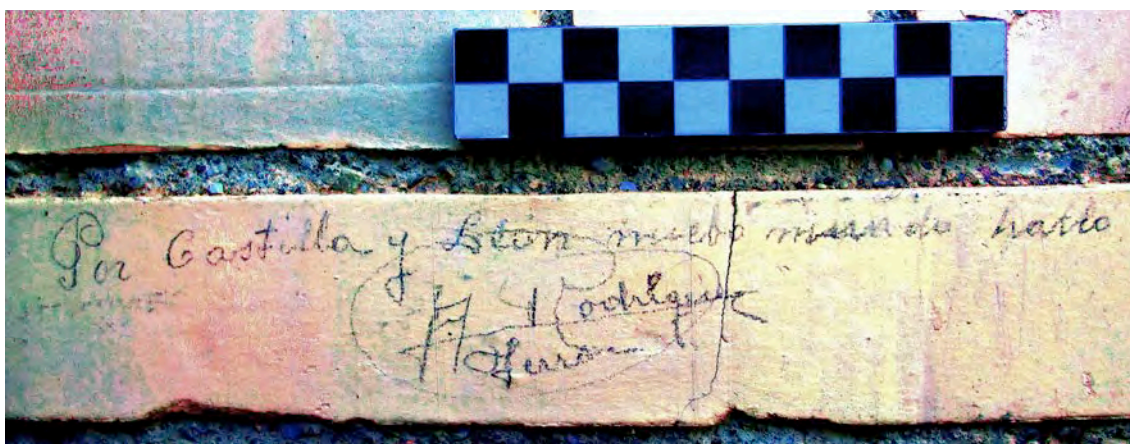 Por Castilla y León nuebo mundo hallo
A Rodriguez